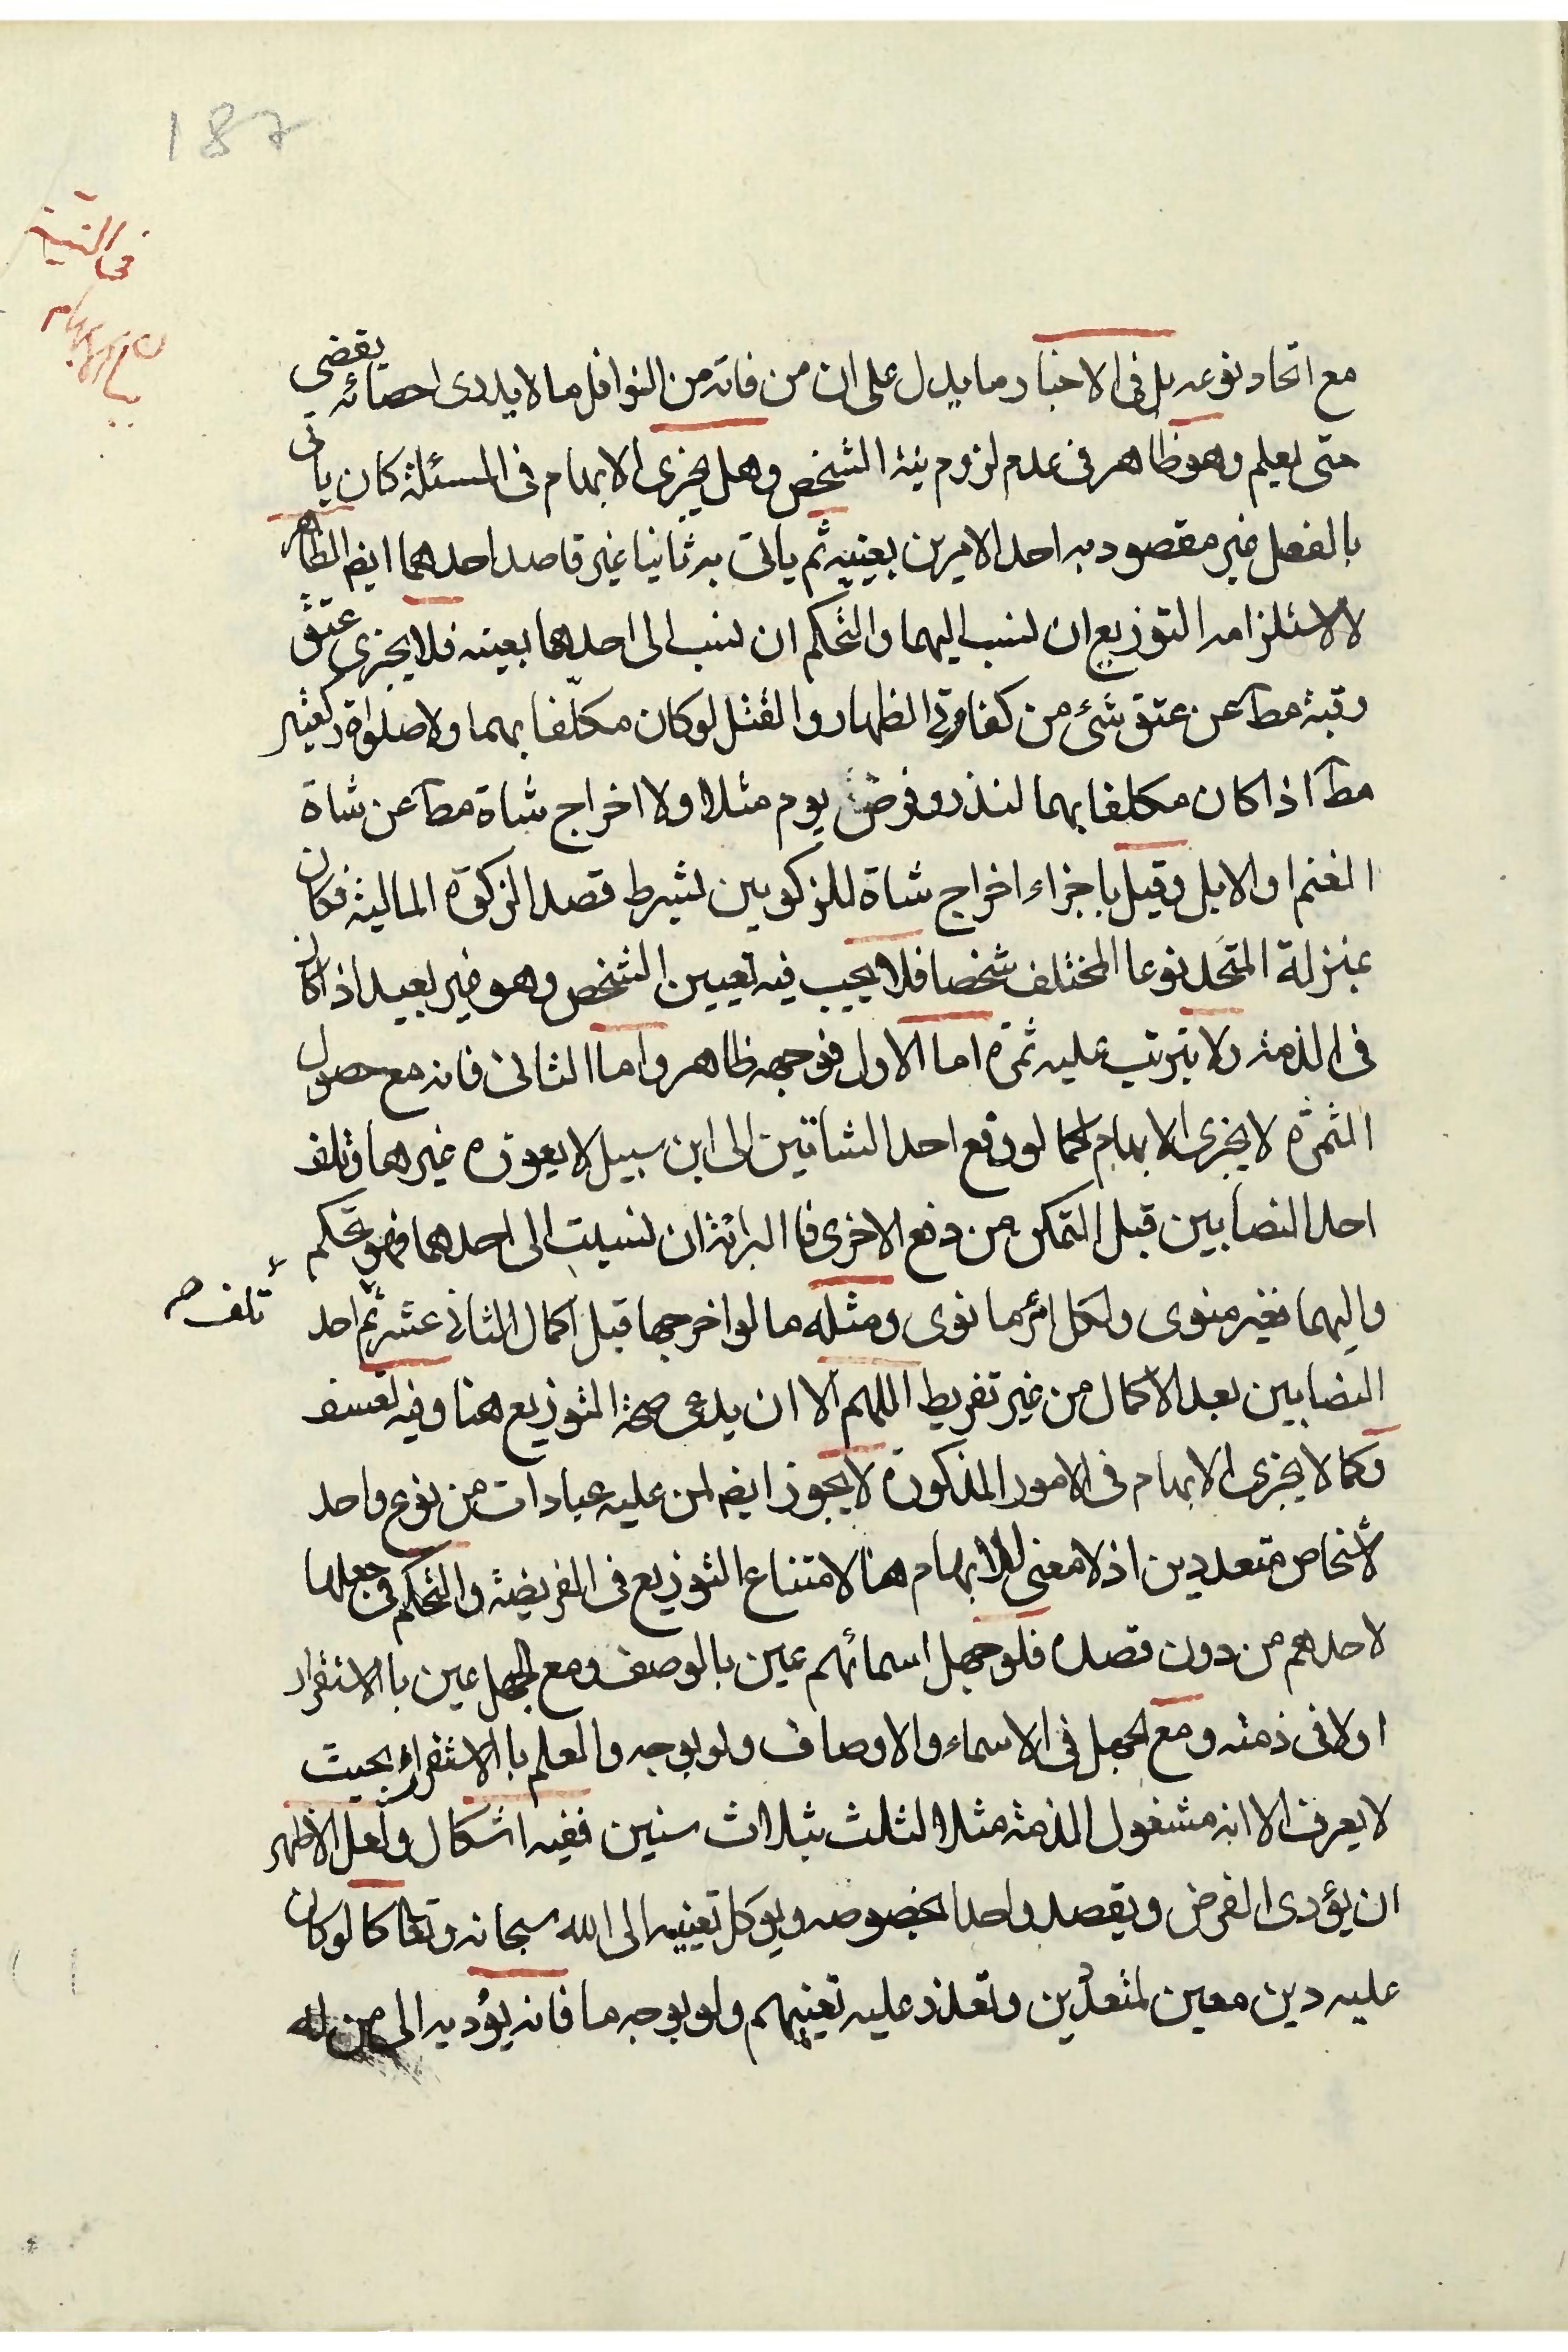 187
فى النية
مع اتحاد نوعه بل فى الاخبار ما يدل على ان من فاته من النوافل ما لا يدرى احصائه يقضى
حتى يعلم وهو ظاهر فى عدم لزوم نية الشخص وهل يجزى الابهام فى المسئلة كان ياتى
بالفعل غير مقصود به احد الامرين بعينه ثم ياتى به ثانيا غير قاصد احدهما ايضا الظاهر
لا لاستلزامه التوزيع ان نسب اليهما والتحكم ان نسب الى احدهما بعينه فلا يجزى عتق
رقبة مط عن عتق شئ من كفارتى الظهار والقتل لو كان مكلّفا بهما ولا صلوة ركعتين
مط اذا كان مكلفا بهما لنذر وفرض يوم مثلا ولا اخراج شاة مط عن شاة
الغنم او الابل وقيل باجزاء اخراج شاة للزكوبين بشرط قصد الزكوة المالية فكان
بمنزلة المتحد نوعا المختلف شخصا فلا يجب فيه تعيين الشخص وهو غير بعيد اذا كان
فى الذمة ولا يترتب عليه ثمرة اما الاول فوجهه ظاهر واما الثانى فانه مع حصول
الثمرة لا يجزى الابهام كما لو دفع احد الشاتين الى ابن سبيل لا يعوزه غيرها وتلف
احد النصابين قبل التمكن من دفع الاخرى فالبرائة ان نسبت الى احدهما فهو تحكم
واليهما فغير منوى ولكل امرء ما نوى ومثله ما لو اخرجها قبل اكمال الثانى عشر ثم احد
تلف صح
النصابين بعد الاكمال من غير تفريط اللهم الا ان يدعى صحة التوزيع هنا وفيه تعسف
وكما لا يجزى الابهام فى الامور المذكورة لا يجوز ايضا لمن عليه عبادات من نوع واحد
لاشخاص متعددين اذ لا معنى للابهام هنا لامتناع التوزيع فى الفريضة والتحكم فى جعلها
لاحدهم من دون قصده فلو جهل اسمائهم عين بالوصف ومع الجهل عين بالاستقرار
اولا فى ذمته ومع الجهل فى الاسماء والاوصاف ولو بوجه والعلم بالاستقرار بحيث
لا يعرف الا انه مشغول الذمة مثلا لثلث بثلاث سنين ففيه اشكال ولعل الاظهر
ان يؤدى الفرض ويقصد واحدا بخصوصه ويوكل تعيينه الى الله سبحانه وتعا كما لو كان
عليه دين معين لمتعدّدين وتعذر عليه تعيينهم ولو بوجه ما فانه يؤديه الى من له